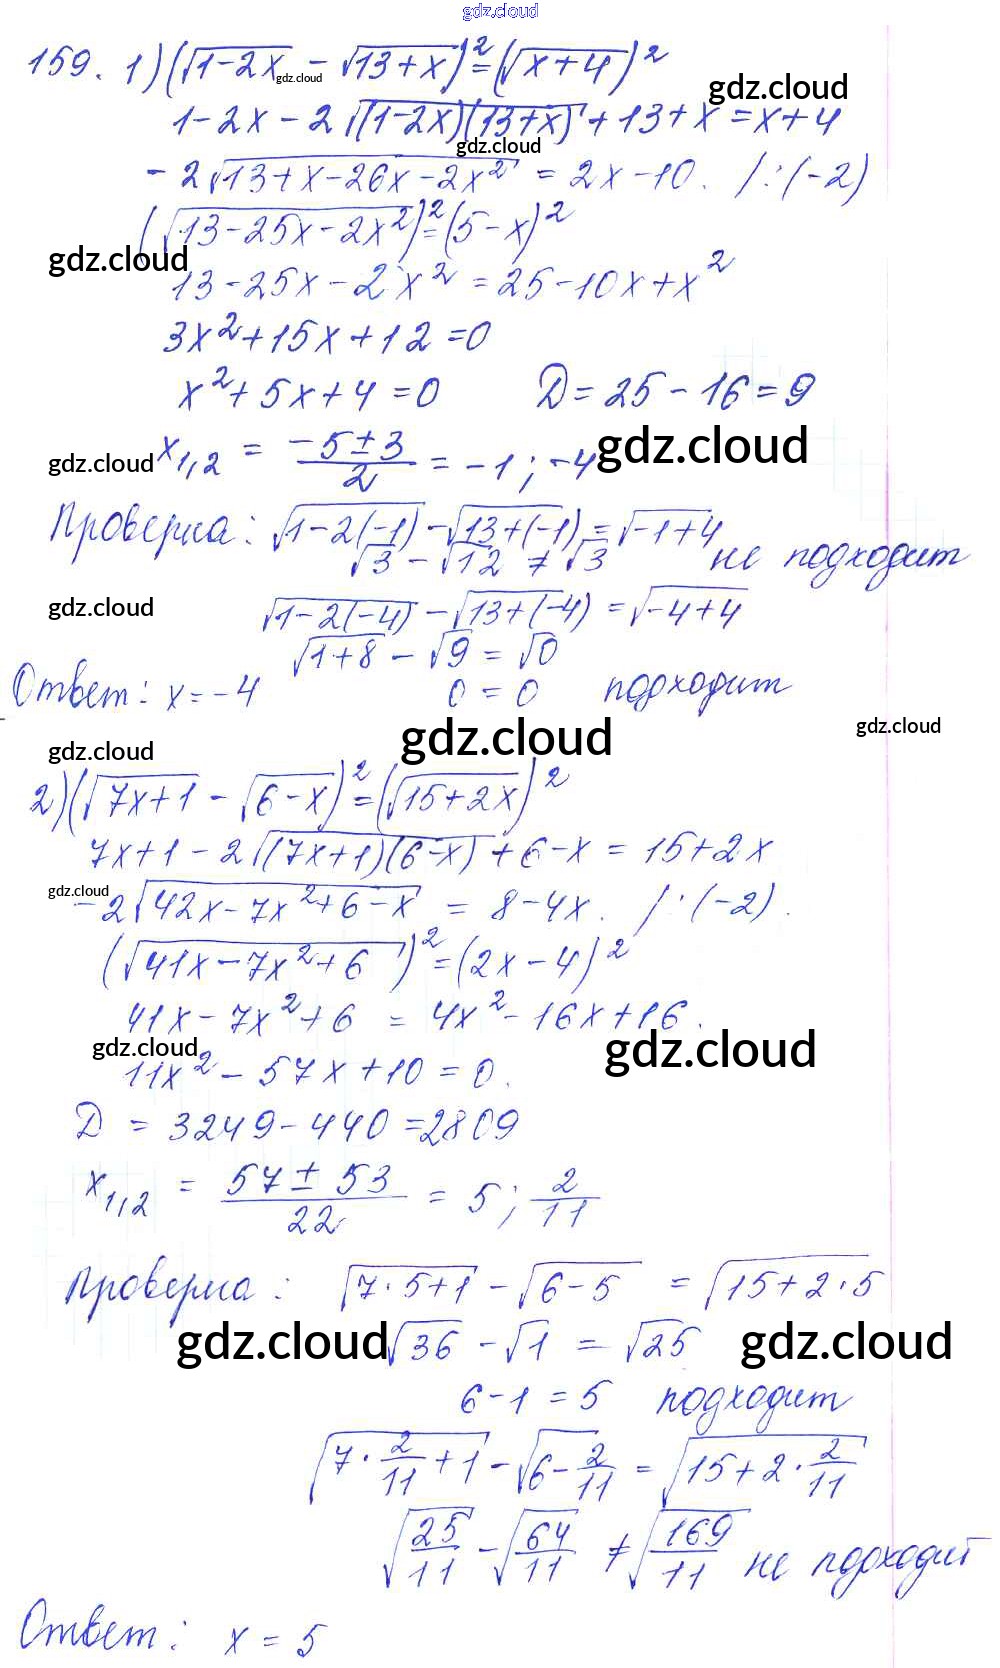 gdz.cloud
159. 1) (√1-2x - √13+x)² = (√x+4)²
gdz.cloud
gdz.cloud
1-2x-2√(1-2x)(13+x) + 13+x = x+4
gdz.cloud
-2√13+x-26x-2x² = 2x-10. /:(-2)
(√13-25x-2x²)² = (5-x)²
gdz.cloud
13-25x-2x² = 25-10x+x²
3x²+15x+12=0
x²+5x+4=0 D=25-16=9
gdz.cloud
gdz.cloud x₁,₂ = (-5±3)/2 = -1; -4
Проверка: √1-2(-1) - √13+(-1) = √-1+4
√3 - √12 ≠ √3 не подходит
gdz.cloud
√1-2(-4) - √13+(-4) = √-4+4
√1+8 - √9 = √0
Ответ: x=-4 0=0 подходит
gdz.cloud
gdz.cloud
gdz.cloud
2) (√7x+1 - √6-x)² = (√15+2x)²
7x+1-2√(7x+1)(6-x) + 6-x = 15+2x
gdz.cloud
-2√42x-7x²+6-x = 8-4x. /:(-2).
(√41x-7x²+6)² = (2x-4)²
41x-7x²+6 = 4x²-16x+16.
gdz.cloud
gdz.cloud
11x²-57x+10=0.
D = 3249-440=2809
x₁,₂ = (57±53)/22 = 5; 2/11
Проверка: √7·5+1 - √6-5 = √15+2·5
gdz.cloud √36 - √1 = √25 gdz.cloud
6-1=5 подходит
√7·2/11+1 - √6-2/11 = √15+2·2/11
√25/11 - √64/11 ≠ √169/11 не подходит
Ответ: x=5